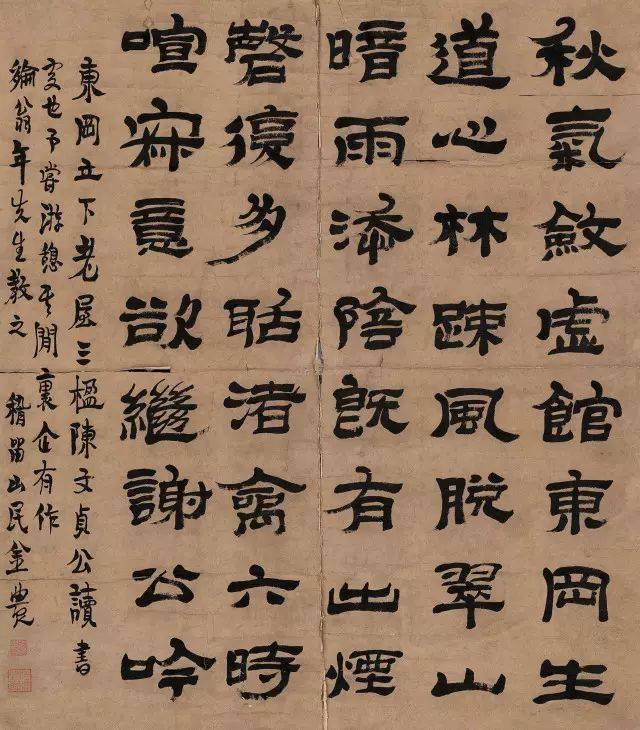 秋氣斂虛館東岡生
道心林疎風脫翠山
暗雨添陰既有出煙
磬復多聒渚禽六時
喧寂意欲繼謝公吟
東岡立下老屋三楹陳文貞公讀書
處也予嘗游憩其間裏企有作
綸翁年先生教之 稽留山民金農